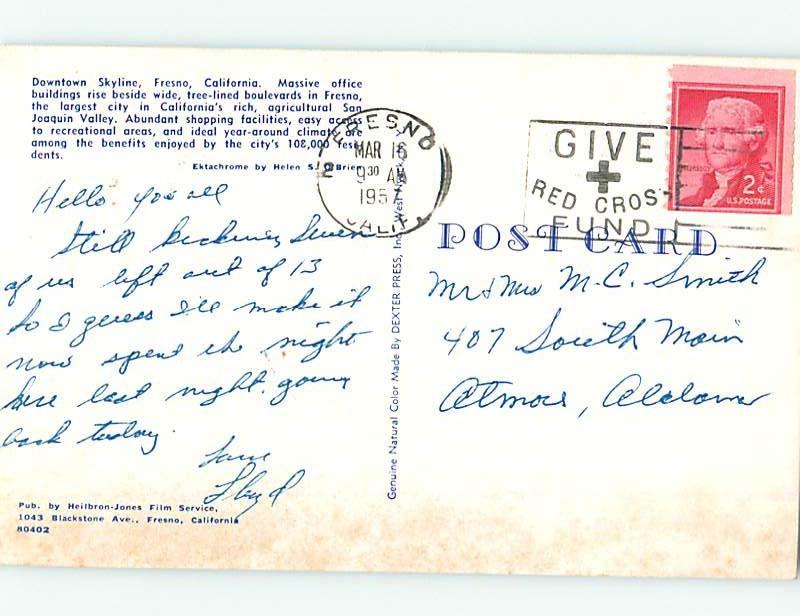 Downtown Skyline, Fresno, California. Massive office
buildings rise beside wide, tree-lined boulevards in Fresno,
the largest city in California's rich, agricultural San
Joaquin Valley. Abundant shopping facilities, easy access
to recreational areas, and ideal year-around climate are
among the benefits enjoyed by the city's 108,000 resi-
dents.
Ektachrome by Helen S. O'Brien
Hello you all
Still kicking Seven
of us left out of 13
so I guess I'll make it
now spent the night
here last night. going
back today.
Love
Floyd
Pub. by Heilbron-Jones Film Service,
1043 Blackstone Ave., Fresno, California
80402
Genuine Natural Color Made By DEXTER PRESS, Inc. West Nyack,
FRESNO
MAR 15
9 30 AM
195
CALIF.
GIVE
RED CROSS
FUND
2¢
U.S. POSTAGE
POST CARD
Mr & Mrs M.C. Smith
407 South Main
Atmore, Alabama